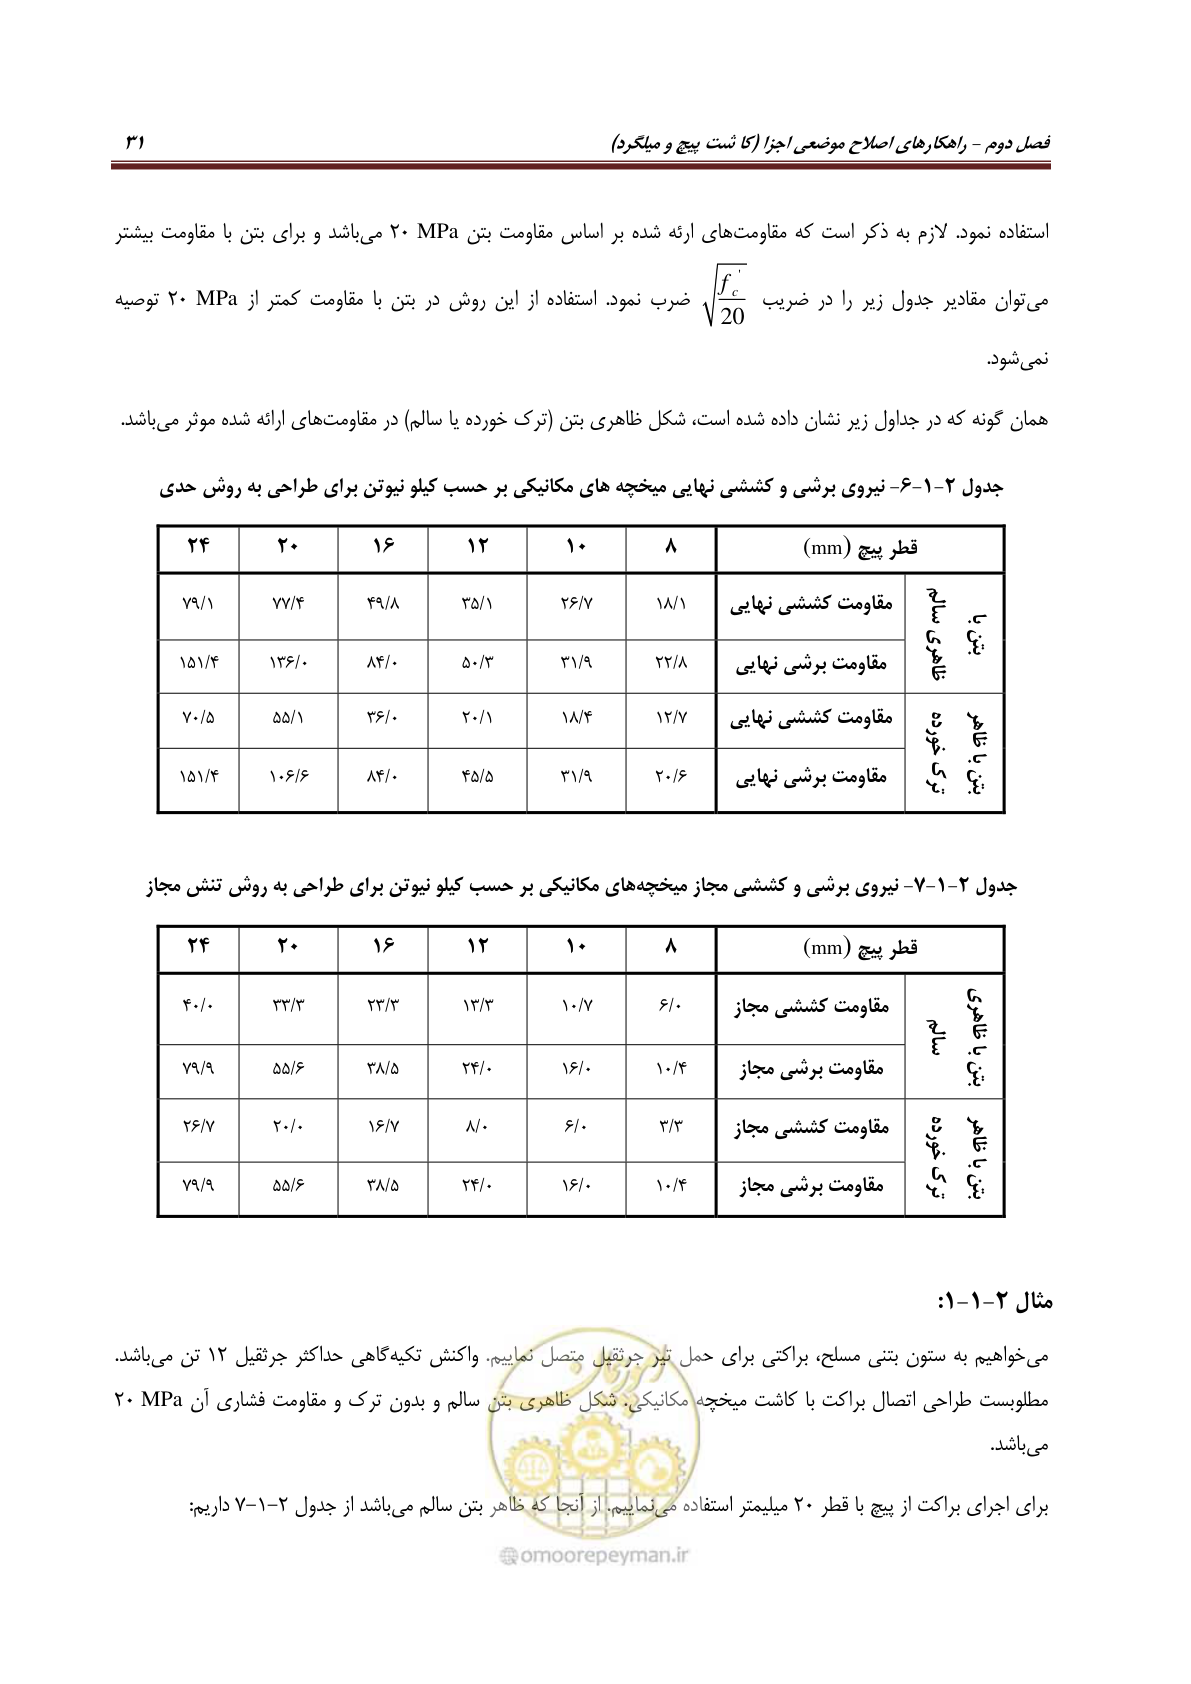 فصل دوم – راهکارهای اصلاح موضعی اجزا (کا شت پیچ و میلگرد) ۳۱
استفاده نمود. لازم به ذکر است که مقاومت‌های ارئه شده بر اساس مقاومت بتن ۲۰ MPa می‌باشد و برای بتن با مقاومت بیشتر
می‌توان مقادیر جدول زیر را در ضریب √(f'c/20) ضرب نمود. استفاده از این روش در بتن با مقاومت کمتر از ۲۰ MPa توصیه
نمی‌شود.
همان گونه که در جداول زیر نشان داده شده است، شکل ظاهری بتن (ترک خورده یا سالم) در مقاومت‌های ارائه شده موثر می‌باشد.
جدول ۲-۱-۶- نیروی برشی و کششی نهایی میخچه های مکانیکی بر حسب کیلو نیوتن برای طراحی به روش حدی
قطر پیچ (mm) ۸ ۱۰ ۱۲ ۱۶ ۲۰ ۲۴
بتن با
ظاهری سالم
مقاومت کششی نهایی ۱۸/۱ ۲۶/۷ ۳۵/۱ ۴۹/۸ ۷۷/۴ ۷۹/۱
مقاومت برشی نهایی ۲۲/۸ ۳۱/۹ ۵۰/۳ ۸۴/۰ ۱۳۶/۰ ۱۵۱/۴
بتن با ظاهر
ترک خورده
مقاومت کششی نهایی ۱۲/۷ ۱۸/۴ ۲۰/۱ ۳۶/۰ ۵۵/۱ ۷۰/۵
مقاومت برشی نهایی ۲۰/۶ ۳۱/۹ ۴۵/۵ ۸۴/۰ ۱۰۶/۶ ۱۵۱/۴
جدول ۲-۱-۷- نیروی برشی و کششی مجاز میخچه‌های مکانیکی بر حسب کیلو نیوتن برای طراحی به روش تنش مجاز
قطر پیچ (mm) ۸ ۱۰ ۱۲ ۱۶ ۲۰ ۲۴
بتن با ظاهری
سالم
مقاومت کششی مجاز ۶/۰ ۱۰/۷ ۱۳/۳ ۲۳/۳ ۳۳/۳ ۴۰/۰
مقاومت برشی مجاز ۱۰/۴ ۱۶/۰ ۲۴/۰ ۳۸/۵ ۵۵/۶ ۷۹/۹
بتن با ظاهر
ترک خورده
مقاومت کششی مجاز ۳/۳ ۶/۰ ۸/۰ ۱۶/۷ ۲۰/۰ ۲۶/۷
مقاومت برشی مجاز ۱۰/۴ ۱۶/۰ ۲۴/۰ ۳۸/۵ ۵۵/۶ ۷۹/۹
مثال ۲-۱-۱:
می‌خواهیم به ستون بتنی مسلح، براکتی برای حمل تیر جرثقیل متصل نماییم. واکنش تکیه‌گاهی حداکثر جرثقیل ۱۲ تن می‌باشد.
مطلوبست طراحی اتصال براکت با کاشت میخچه مکانیکی. شکل ظاهری بتن سالم و بدون ترک و مقاومت فشاری آن ۲۰ MPa
می‌باشد.
برای اجرای براکت از پیچ با قطر ۲۰ میلیمتر استفاده می‌نماییم. از آنجا که ظاهر بتن سالم می‌باشد از جدول ۲-۱-۷ داریم:
omoorepeyman.ir